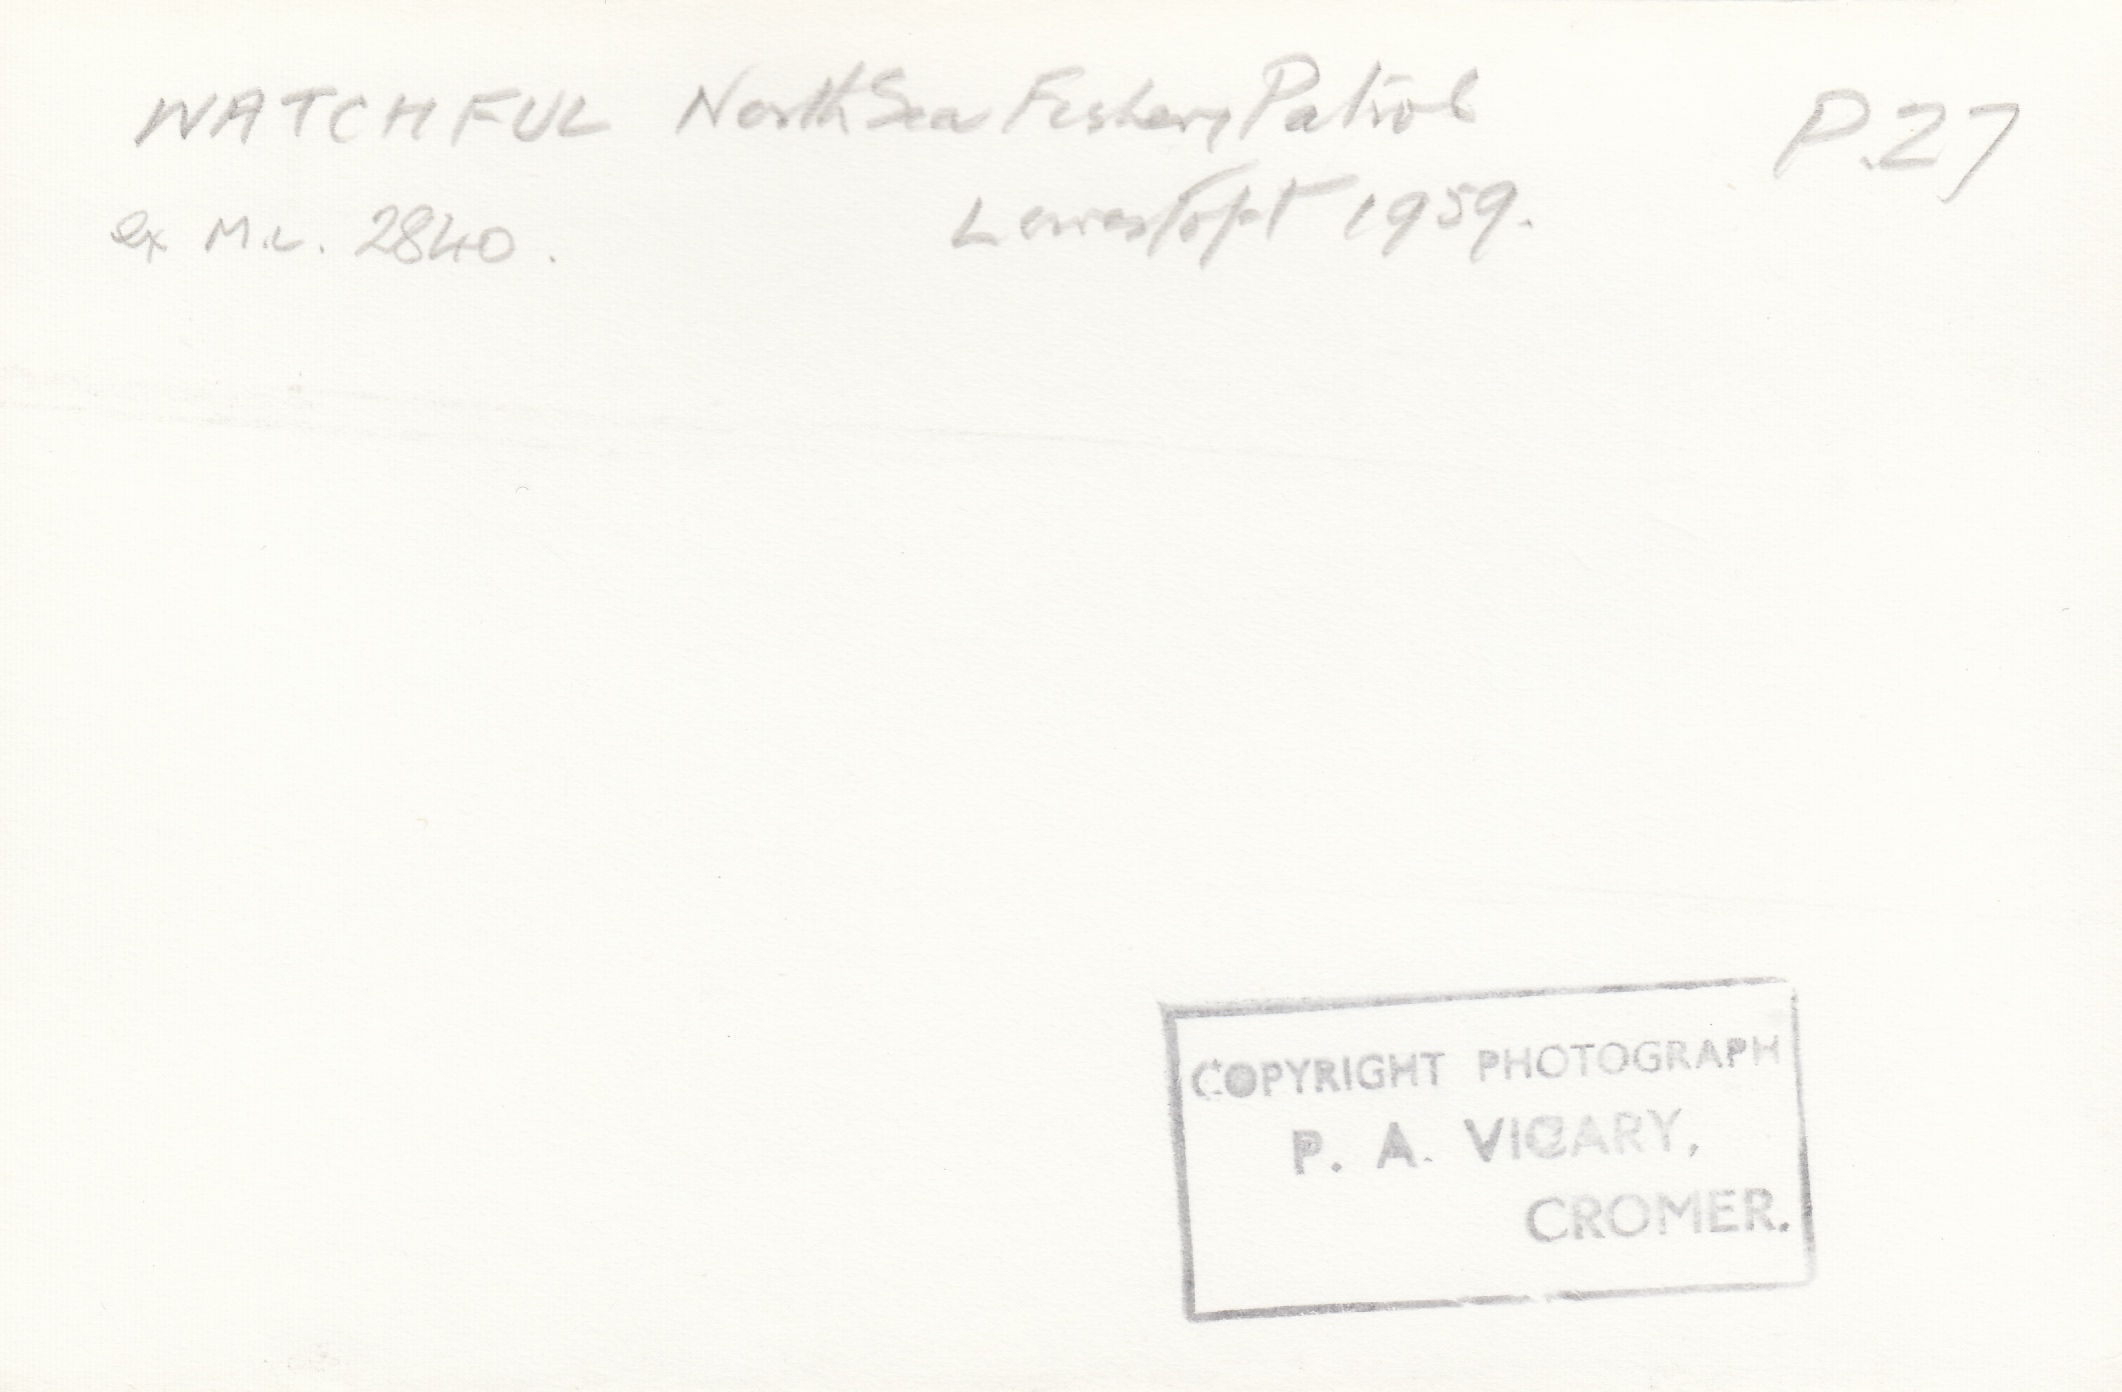 WATCHFUL North Sea Fishery Patrol P.27
ex M.L. 2840. Lowestoft 1959.
COPYRIGHT PHOTOGRAPH
P. A. VICARY,
CROMER.